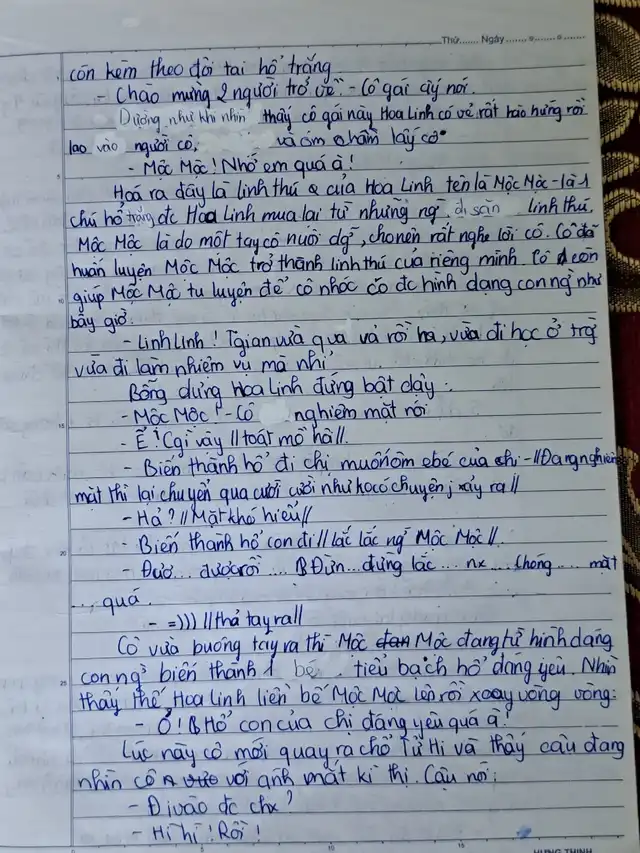 Thứ....... Ngày.......
còn kèm theo đôi tai hổ trắng
- Chào mừng 2 người trở về - Cô gái cíy nói.
Dường như khi nhìn thấy cô gái này Hoa Linh có vẻ rất hào hứng rồi
lao vào người cô, và ôm chầm lấy cô.
- Mộc Mộc! Nhớ em quá à!
Hoá ra đây là linh thú của Hoa Linh tên là Mộc Mộc - là 1
chú hổ trắng đc Hoa Linh mua lại từ những ng đi săn linh thú.
Mộc Mộc là do một tay cô nuôi dg, cho nên rất nghe lời cô. Cô đã
huấn luyện Mộc Mộc trở thành linh thú của riêng mình. Cô còn
giúp Mộc Mộc tu luyện để cô nhóc có đc hình dạng con ng như
bây giờ.
- Linh Linh! Tgian vừa qua vả rồi ha, vừa đi học ở trg
vừa đi làm nhiệm vụ mà nhỉ
Bỗng dưng Hoa Linh đứng bật dậy.
- Mộc Mộc! - Cô nghiêm mặt nói
- Ể! Cgì vậy //toát mồ hôi//.
- Biến thành hổ đi chị muốn ôm bé của chị - //Đang nghiêm
mặt thì lại chuyển qua cười cười như ko có chuyện j xảy ra//
- Hả? //Mặt khó hiểu//
- Biến thành hổ con đi //lắc lắc ng Mộc Mộc//.
- Đượ... được rồi .... Đừn... đừng lắc ... nx ... chóng .... mặt
.... quá.
- =))) //thả tay ra//
Cô vừa buông tay ra thì Mộc Mộc đang từ hình dạng
con ng biến thành 1 bé tiểu bạch hổ đáng yêu. Nhìn
thấy thế, Hoa Linh liền bế Mộc Mộc lên rồi xoay vòng vòng:
- Ô! Hổ con của chị đáng yêu quá à!
Lúc này cô mới quay ra chỗ Tử Hi và thấy cậu đang
nhìn cô với ánh mắt kì thị. Cậu nói:
- Đi vào đc chx?
- Hì hì! Rồi!
HƯNG THỊNH